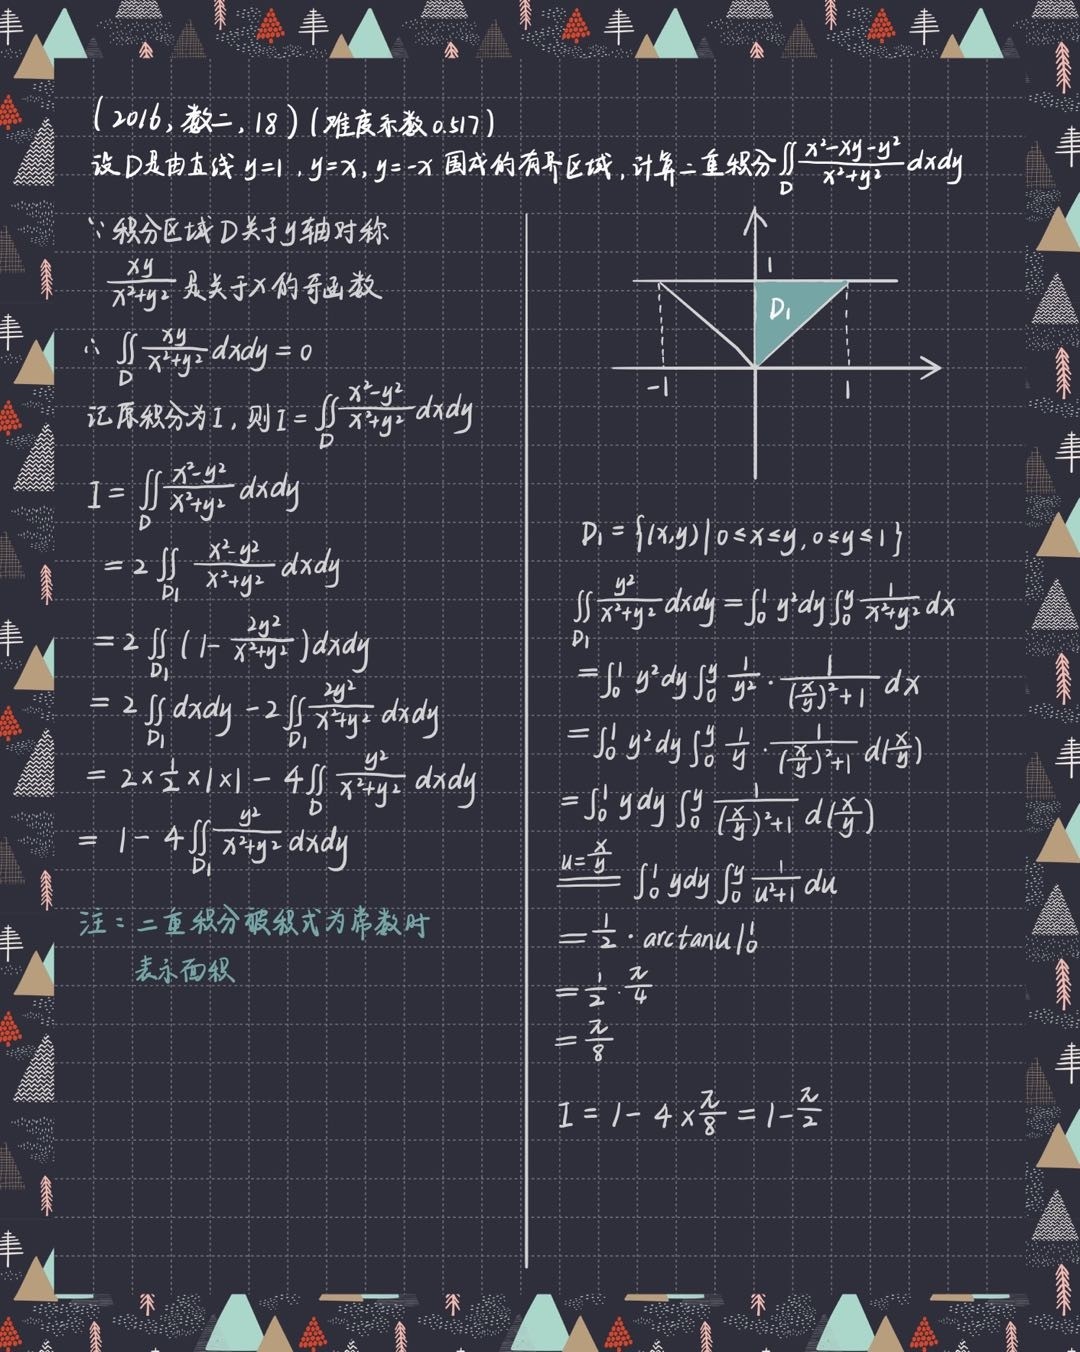 (2016, 数二, 18) (难度系数 0.517)
设 D是由直线 y=1, y=x, y=-x 围成的有界区域, 计算二重积分∬_D (x²-xy-y²)/(x²+y²) dxdy
∵ 积分区域 D关于y轴对称
xy/(x²+y²) 是关于x的奇函数
∴ ∬_D xy/(x²+y²) dxdy = 0
记原积分为I, 则 I = ∬_D (x²-y²)/(x²+y²) dxdy
I = ∬_D (x²-y²)/(x²+y²) dxdy
= 2∬_D₁ (x²-y²)/(x²+y²) dxdy
= 2∬_D₁ (1 - 2y²/(x²+y²)) dxdy
= 2∬_D₁ dxdy - 2∬_D₁ 2y²/(x²+y²) dxdy
= 2×1/2×1×1 - 4∬_D y²/(x²+y²) dxdy
= 1 - 4∬_D₁ y²/(x²+y²) dxdy
注: 二重积分被积式为常数时
表示面积
1
D₁
-1
1
D₁ = {(x,y) | 0≤x≤y, 0≤y≤1}
∬_D₁ y²/(x²+y²) dxdy = ∫₀¹ y²dy ∫₀^y 1/(x²+y²) dx
= ∫₀¹ y²dy ∫₀^y 1/y² · 1/((x/y)²+1) dx
= ∫₀¹ y²dy ∫₀^y 1/y · 1/((x/y)²+1) d(x/y)
= ∫₀¹ ydy ∫₀^y 1/((x/y)²+1) d(x/y)
u=x/y ∫₀¹ ydy ∫₀^y 1/(u²+1) du
= 1/2 · arctanu|₀¹
= 1/2 · π/4
= π/8
I = 1 - 4×π/8 = 1 - π/2